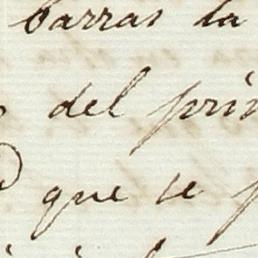 barras la
del prin
que se p